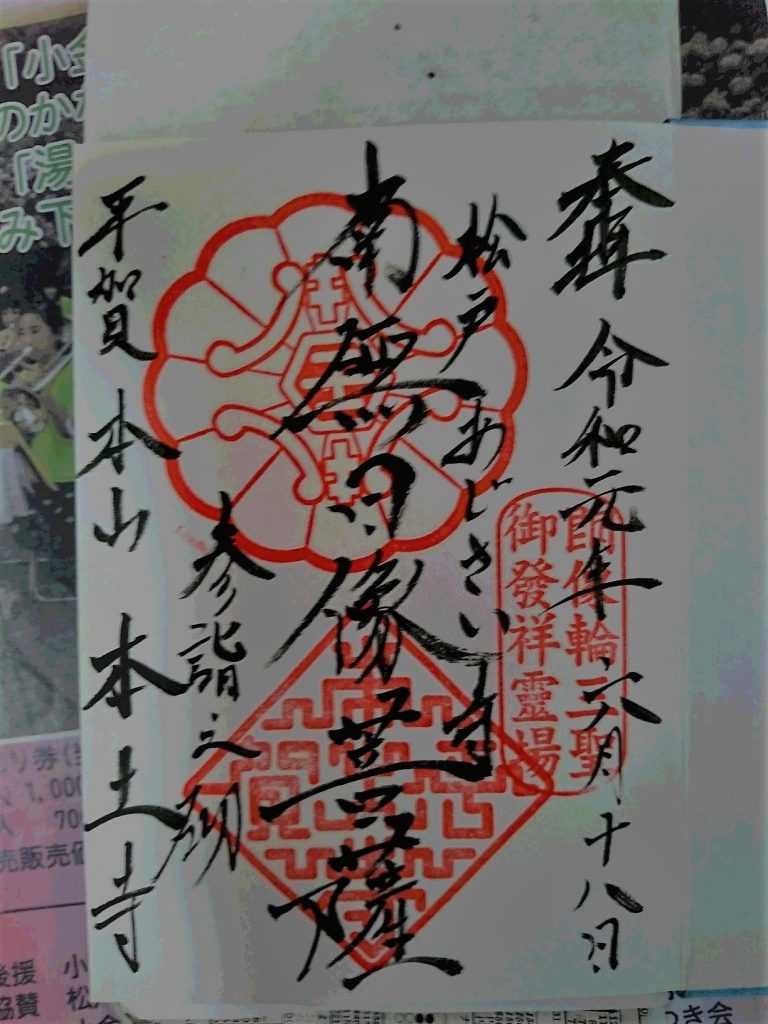 奉拝 令和元年 六月 十八日
師像輪三聖
御發祥靈場
松戸あじさい寺
南無日像菩薩
参詣之砌
平賀 本山 本土寺
「小金
のかな
「湯
み下
り券(当
1,000
70
売販売価
後援 小
協賛 松
つき会